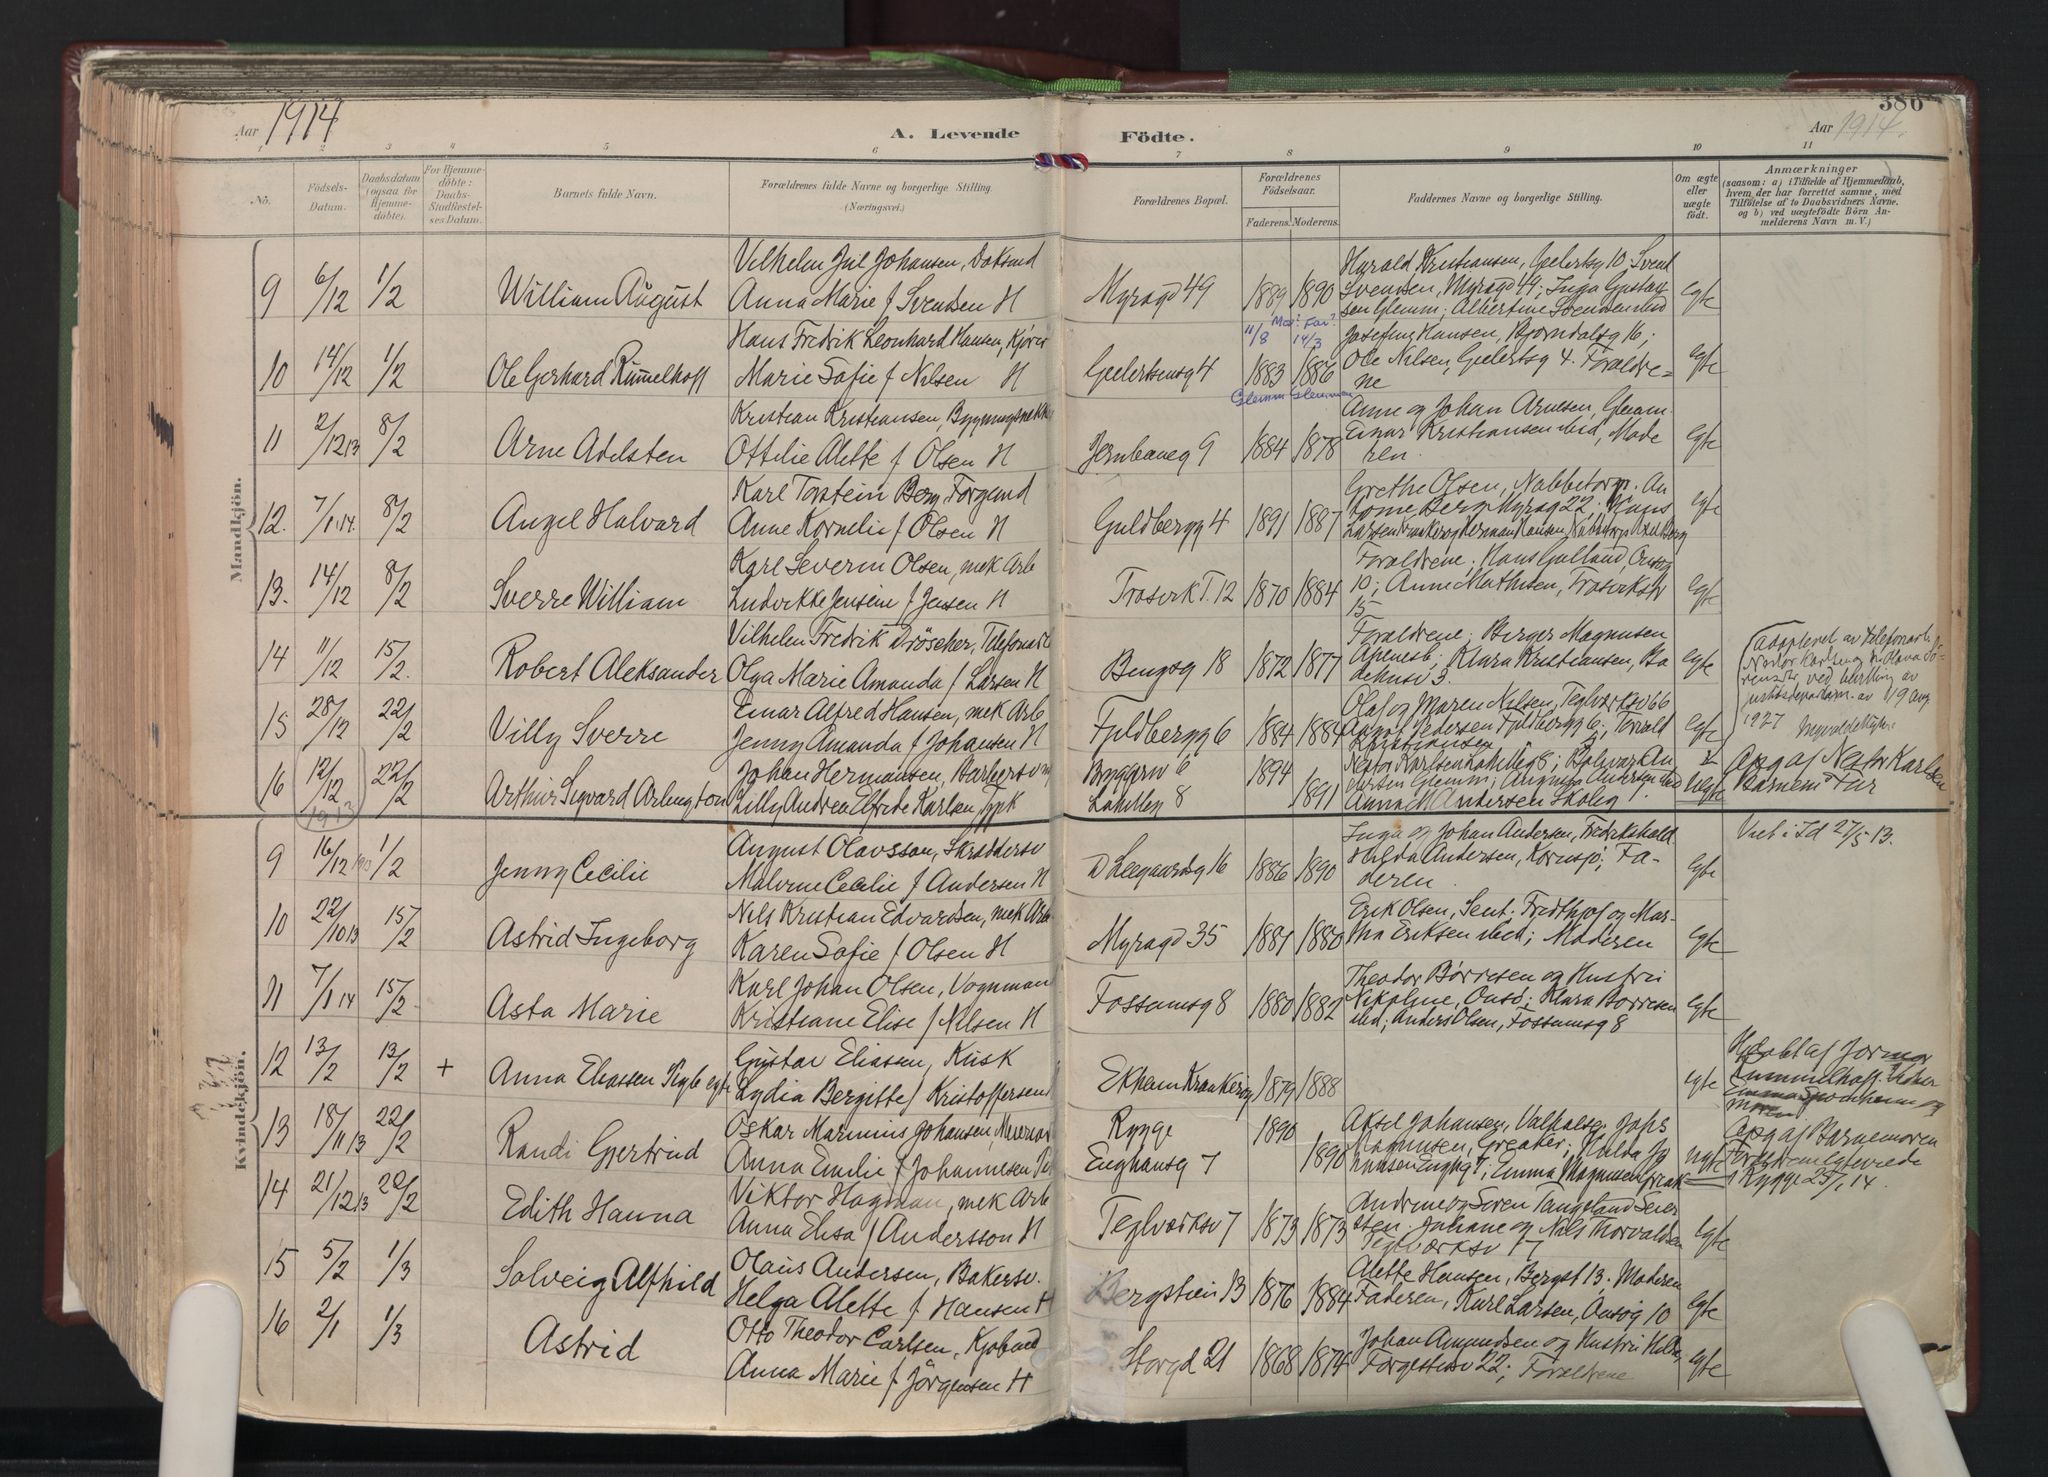 Aar 1914
A. Levende Födte.
380
Aar 1914.
1 2 3 4 5 6 7 8 9 10 11
No.
Födsels-Datum.
Daabsdatum (ogsaa for Hjemme-döbte).
For Hjemme-döbte: Daabs-Stadfæstel-ses Datum.
Barnets fulde Navn.
Forældrenes fulde Navne og borgerlige Stilling.
(Næringsvei.)
Forældrenes Bopæl.
Forældrenes Födselsaar.
Faderens. Moderens.
Faddernes Navne og borgerlige Stilling.
Om ægte eller uægte födt.
Anmærkninger
(saasom: a) i Tilfælde af Hjemmedaab, hvem der har forrettet samme, med Tilföielse af to Daabsvidners Navne. og b) ved uægtefödte Börn An-melderens Navn m. V.)
Mandkjön.
9 6/12 1/2 William August
Vilhelm Jul Johansen, Doksmd
Anna Marie f Svendsen H
Myragd 49 1889 1890
Harald Kristiansen, Geelertsg 10 Svend
Svendsen, Myragd 49; Inga Gustav
sen Glemm; Albertine Svendsen ibid
egte
10 14/12 1/2 Ole Gerhard Rummelhoff
Hans Fredrik Leonhard Hansen, Kjörer
Marie Sofie f Nilsen H
Geelertsensg 4 1883 1886
11/8 Mor? Far? 14/3
Glemm Glemmen
Josefine Hansen, Bjorndalsg 16;
Ole Nilsen, Geelertsg 4. Foraldre=
ne
egte
11 2/12 13 8/2 Arne Adelsten
Kristian Kristiansen, Bygningssnekker
Ottilie Alette f Olsen H
Jernbaneg 9 1884 1878
Anne og Johan Arnesen, Glemm.
Einar Kristiansen ibid, Mode
ren.
egte
12. 7/1 14. 8/2 Angel Halvard
Karl Torstein Berg, Forgemd
Anne Kornelie f Olsen H
Guldbergg 4 1891 1887
Grethe Olsen, Nabbetorp. An
tome Berg Myrag 22; Hans
egte
13. 14/12 8/2 Sverre William
Karl Severin Olsen, mek Arb
Ludvikke Jensine f Jensen H
Trosvik T. 12 1870 1884
Foraldrene; Hans Gulland, Onsög
10; Anne Mathisen, Trosvikstr
15
egte
14 11/12 15/2. Robert Aleksander
Vilhelm Fredrik Dröscher, Telefonarb
Olga Marie Amanda f Larsen H
Bengsg 18 1872 1877
Foraldrene; Berger Magnusen
Apenesb; Klara Kristiansen, Ba
dehusv 3.
egte
adoptert av telefonarb.
Nator Karlsen og h. Olava Sö-
rensdtr. ved bevilling av
justisdepartem. av 19 aug
1927
15 28/12 22/2 Villy Sverre
Einar Alfred Hansen, mek Arb
Jenny Amanda f Johansen H
Fjeldbergg 6 1884 1884
Olaf og Maren Nilsen, Teglverksv 66
August Pedersen Fjeldbergg 6; Torvald
Kristiansen
egte
16 12/12 1913 22/2 Arthur Sigvard Arlington
Johan Hermansen, Barbersv
Lilly Andrea Elfride Karlsen, Typk
Byggerv 6
Labelleg 8
1894 1891
Nator Karlsen Labelleg 8; Bolivar An
dersen Glemm; Augusta Andersen ibid
Anna M Andersen Skoleg 1.
uegte
Opg af Nator Karlsen
Barnem Fur
Kvindekjön.
9 16/12 1913 1/2 Jenny Cecilie
August Olavsson, Skræddersv
Malvine Cecilie f Andersen H
D Leegaardsg 16 1886 1890
Inga og Johan Andersen, Fredrikshald
Hilda Andersen, Kornsjö; Fa-
deren
egte
Viet i Id 27/5 13.
10 22/10 13 15/2 Astrid Ingeborg
Nils Kristian Edvardsen, mek Arb
Karen Sofie f Olsen H
Myragd 35 1881 1880
Erik Olsen, Sent. Fridthjof og Mar-
tha Eriksen ibid; Moderen
egte
11 7/1 14 15/2 Asta Marie
Karl Johan Olsen, Vognmand
Kristiane Elise f Nilsen H
Fossumsg 8 1880 1882
Theodor Börresen og Hustru
Nikoline, Onsö; Klara Borresen
ibid; Anders Olsen, Fossumsg 8
egte
12 13/2 13/2 + Anna Eliassen Pigeb egte
Gustav Eliassen, Kusk
Lydia Bergitte f Kristoffersen
Ekholm Krankerög 1879 1888
egte
Hjdöbt af Jormor
Rummelhoff.
13 18/11 13 22/2 Randi Gjertrud
Oskar Marinius Johansen, Meierson
Anna Emilie f Johannesen
Rygge
Enghausg 7
1890 1890
Aksel Johansen, Valhalsg. Johs
Magnusen, Greaker; Hulda Jo
hansen Enghg 7; Emma Magnusen Greak
uegte
Opg af Barnemoren
Foraldrene egteviede
i Rygge 25/1 14.
14 21/12 13 22/2 Edith Hanna
Viktor Hagman, mek Arb
Anna Elisa f Andersson H
Teglverksv 7 1873 1873
Andrine og Soren Tangeland Seier
sten. Johane og Nils Thorvaldsen
Teglverksv 17
egte
15 5/2 1/3 Solveig Alfhild
Olaus Andersen, Bakersv.
Helga Alette f Hansen H
Bergstien 13 1876 1884
Alette Hansen, Bergst 13; Moderen
Faderen, Karl Larsen, Onsög 10
egte
16 2/1 1/3 Astrid
Otto Theodor Carlsen, Kjobmd
Anna Marie f Jörgensen H
Storgd 21 1868 1874
Johan Amundsen og Hustru Hilda,
Forgestadv 22; Foraldrene
egte